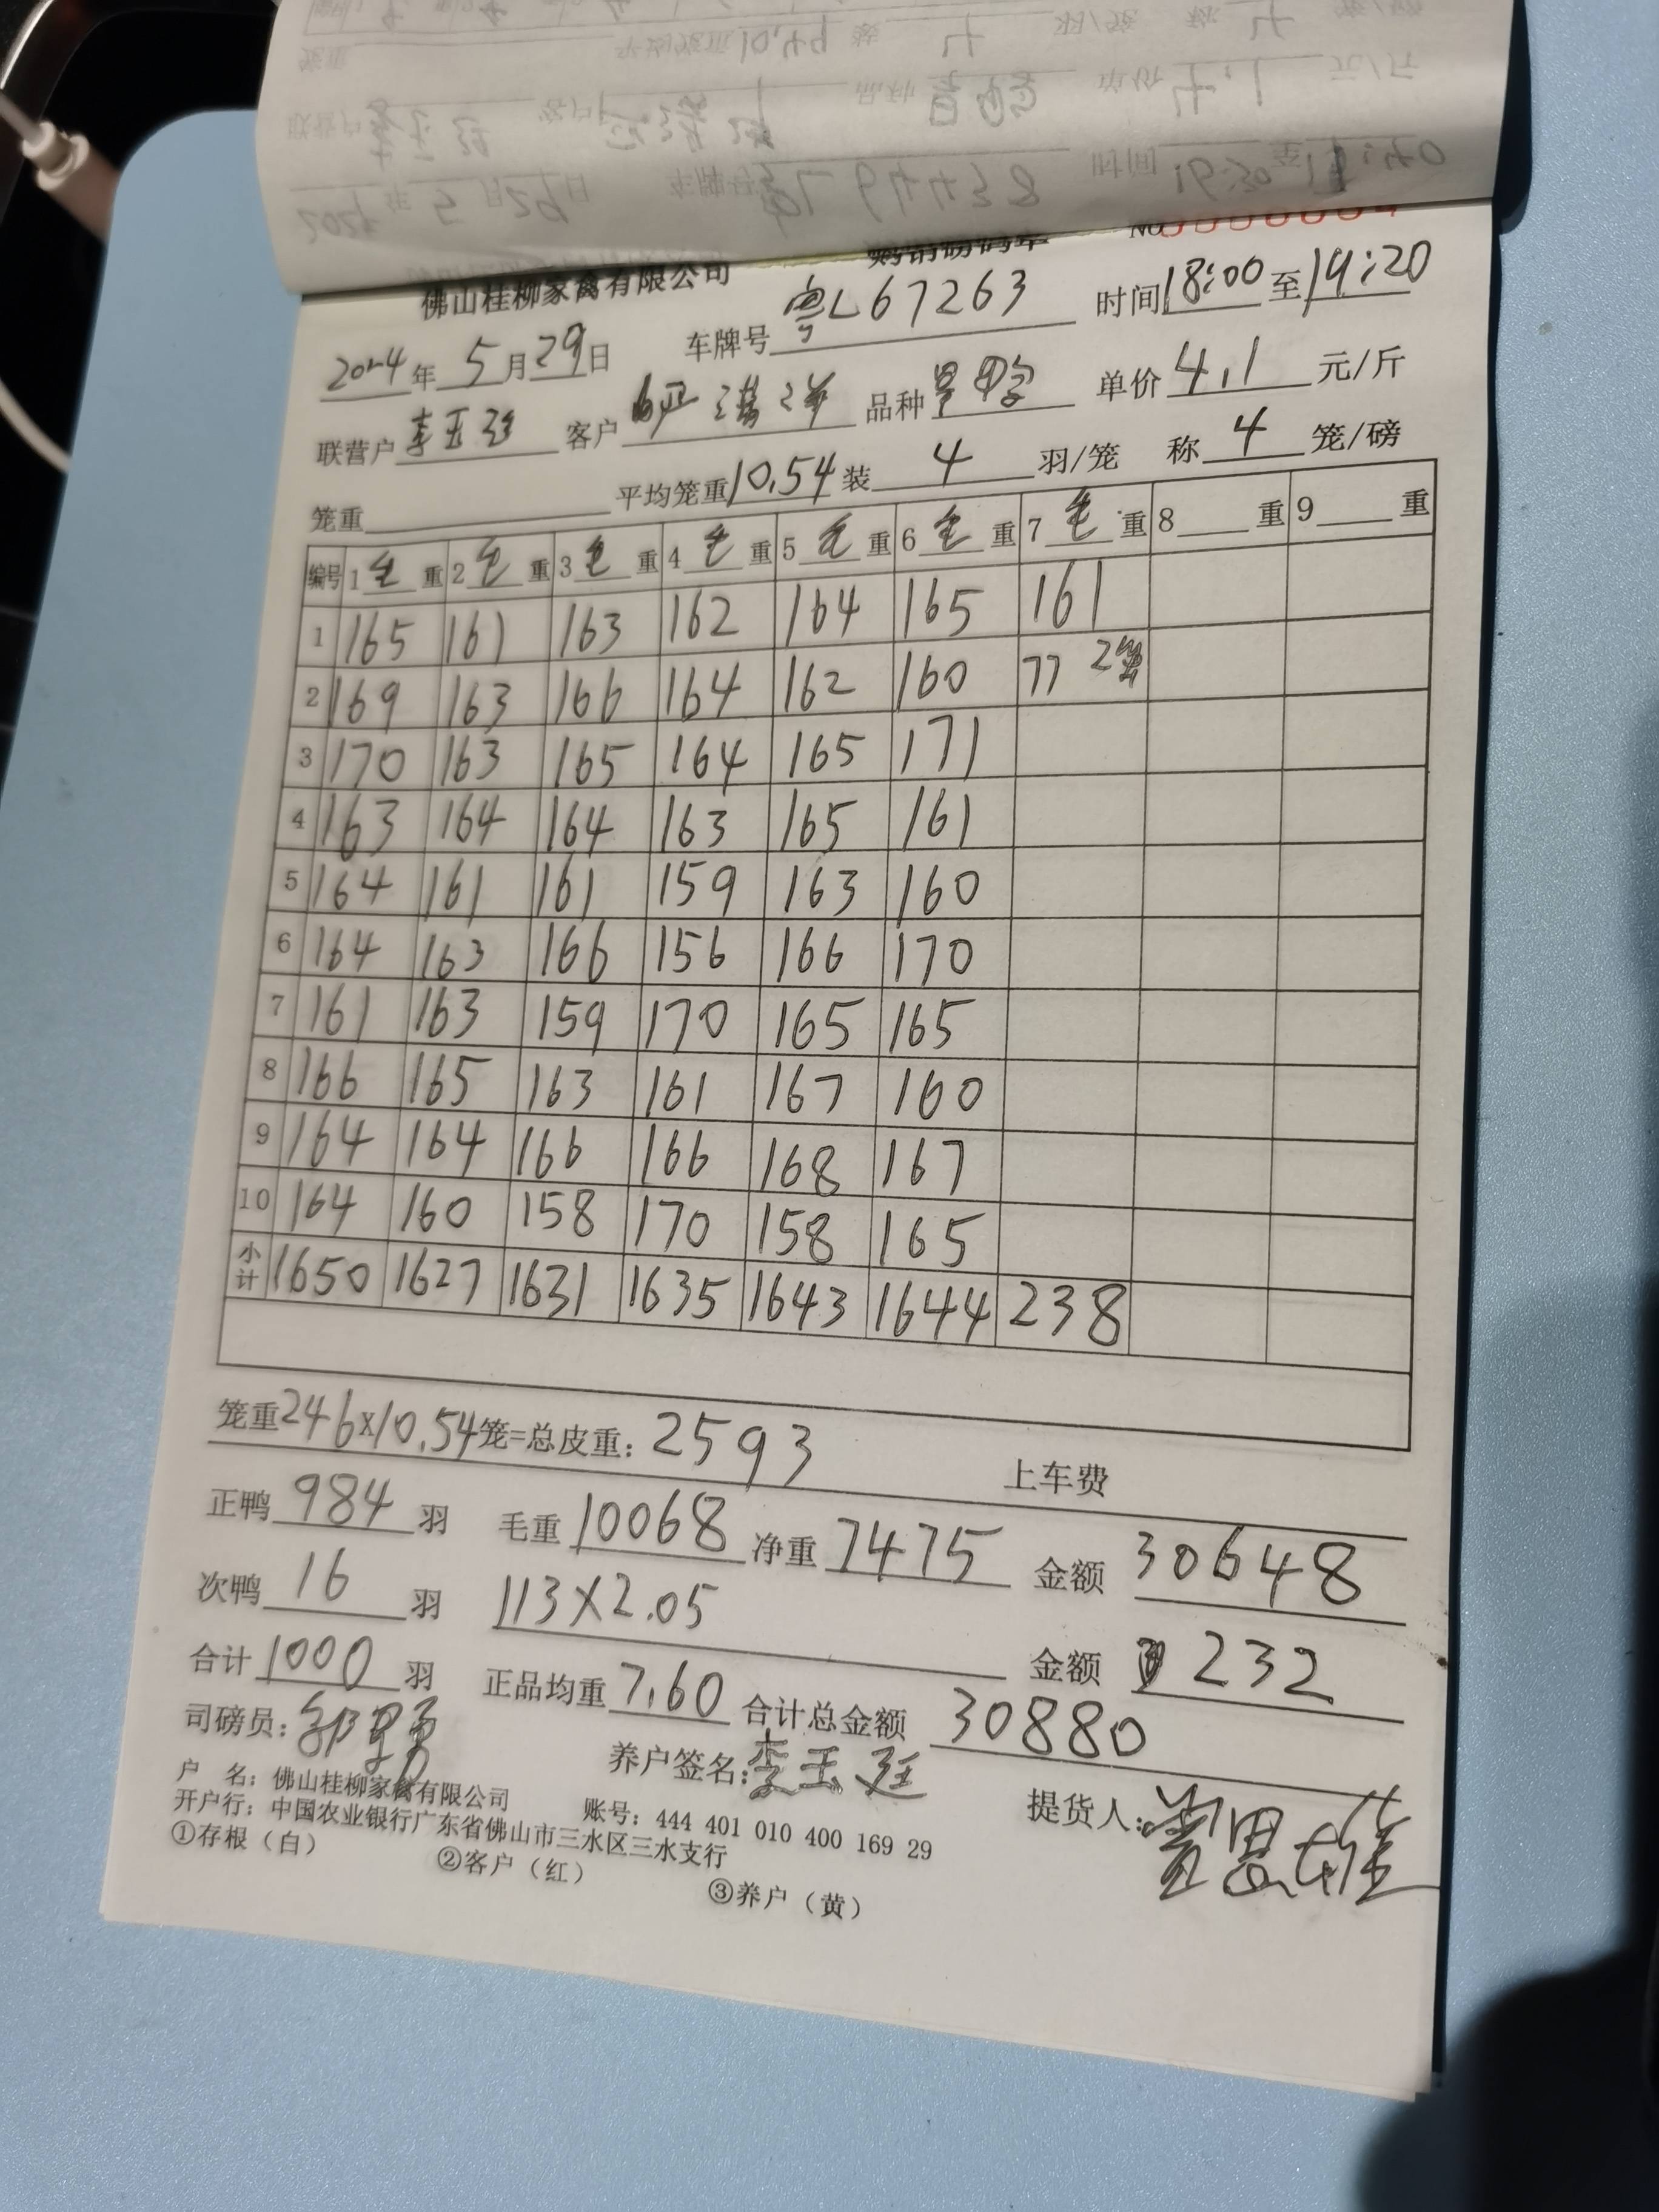 佛山桂柳家禽有限公司
购销磅码单
No
2024年 5月29日 车牌号 粤L67263 时间18:00至19:20
联营户 李玉廷 客户 品种 单价4.1元/斤
笼重 平均笼重10.54装 4 羽/笼 称 4 笼/磅
编号 1毛重 2毛重 3毛重 4毛重 5毛重 6毛重 7毛重 8 重 9 重
1 165 161 163 162 164 165 161
2 169 163 166 164 162 160 77 2笼
3 170 163 165 164 165 171
4 163 164 164 163 165 161
5 164 161 161 159 163 160
6 164 163 166 156 166 170
7 161 163 159 170 165 165
8 166 165 163 161 167 160
9 164 164 166 166 168 167
10 164 160 158 170 158 165
小计 1650 1627 1631 1635 1643 1644 238
笼重246x10.54笼=总皮重：2593 上车费
正鸭 984 羽 毛重 10068 净重 7475 金额 30648
次鸭 16 羽 113×2.05 金额 232
合计 1000 羽 正品均重 7.60 合计总金额 30880
司磅员： 养户签名：李玉廷 提货人：
户 名：佛山桂柳家禽有限公司 账号：444 401 010 400 169 29
开户行：中国农业银行广东省佛山市三水区三水支行
①存根（白） ②客户（红） ③养户（黄）